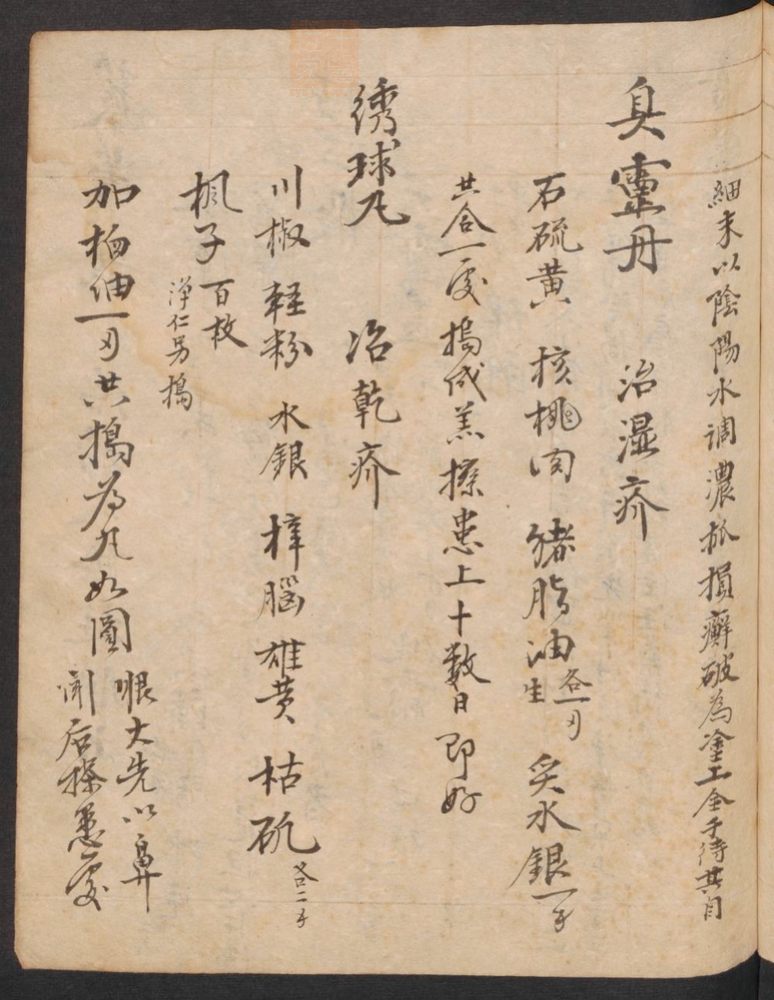 細末以陰陽水調濃抓損癬破為塗工全子待其自
臭靈丹 治湿疥
石硫黄 核桃肉 猪脂油生各一刄 炙水銀一子
共合一處搗成羔搽患上十数日即好
绣球丸 治乾疥
川椒 軽粉 水銀 樟腦 雄黄 枯矾各二子
楓子百枚 淨仁另搗
加柏油一刄共搗為丸如圓
眼大先以鼻
闻后搽患處